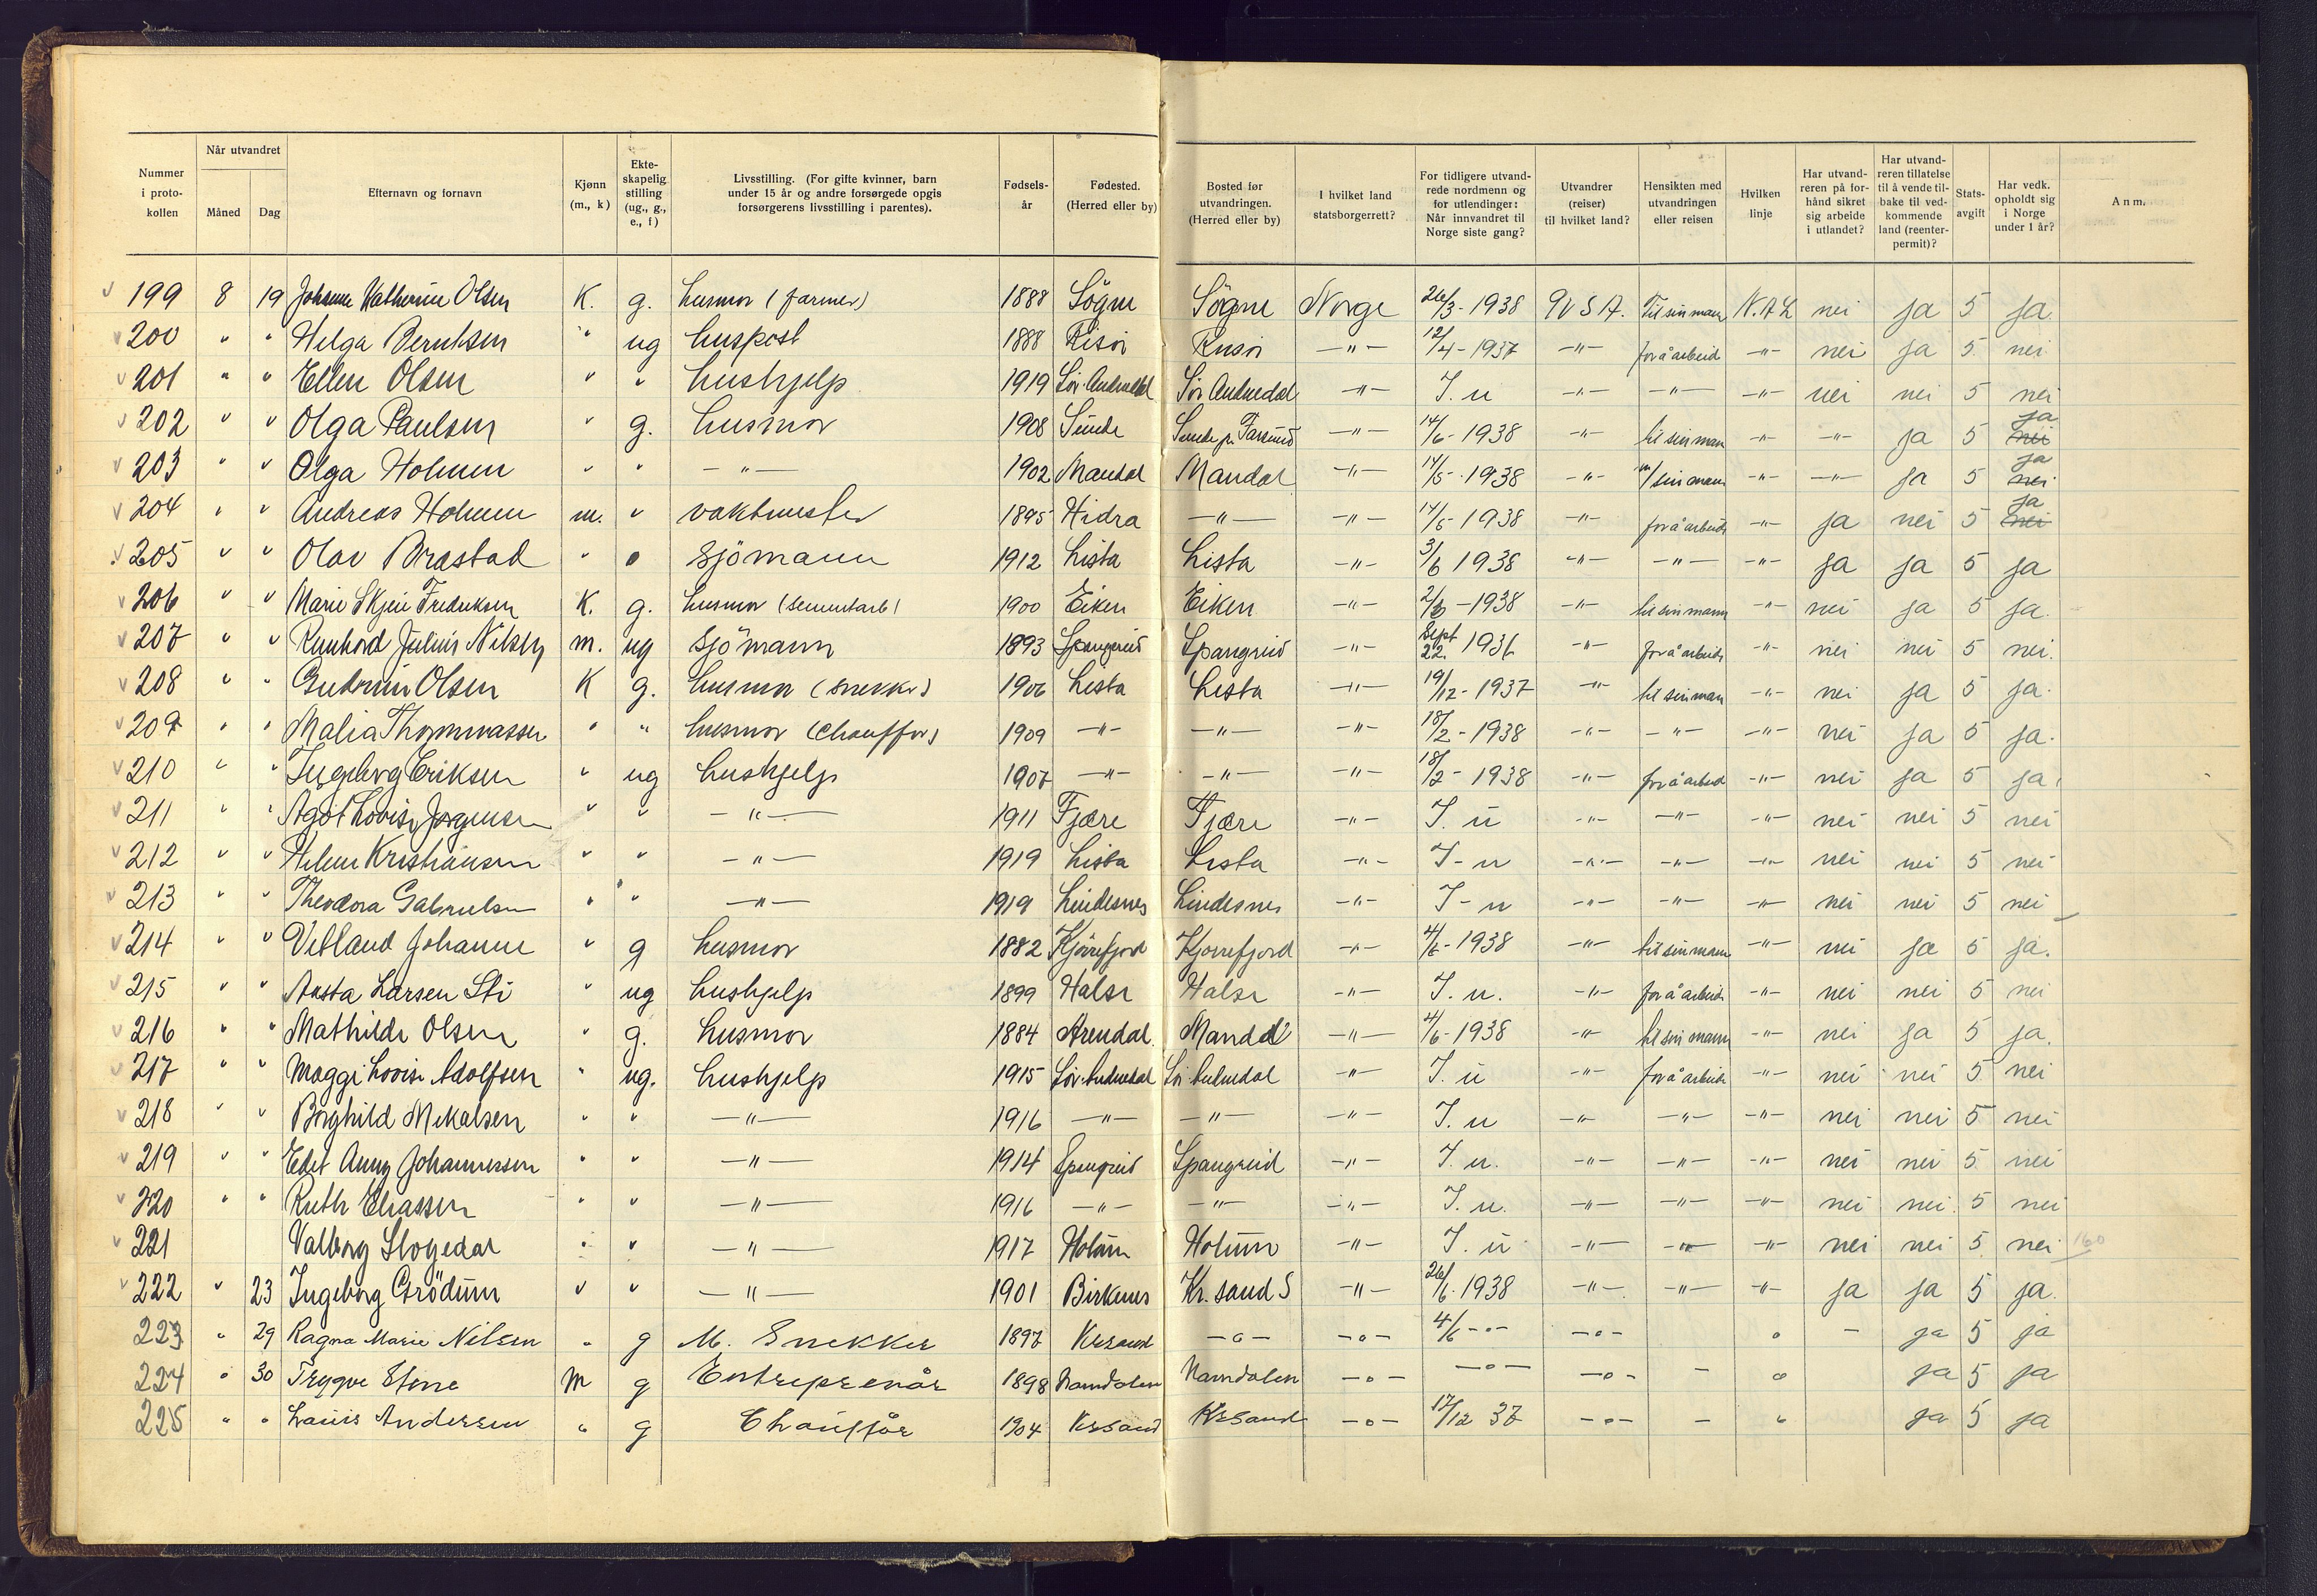 Nummer i proto-kollen | Når utvandret Måned | Dag | Efternavn og fornavn | Kjønn (m., k) | Ekte-skapelig stilling (ug., g., e., f) | Livsstilling. (For gifte kvinner, barn under 15 år og andre forsørgede opgis forsørgerens livsstilling i parentes). | Fødsels-år | Fødested. (Herred eller by) | Bosted før utvandringen. (Herred eller by) | I hvilket land statsborgerrett? | For tidligere utvand-rede nordmenn og for utlendinger: Når innvandret til Norge siste gang? | Utvandrer (reiser) til hvilket land? | Hensikten med utvandringen eller reisen | Hvilken linje | Har utvand-reren på for-hånd sikret sig arbeide i utlandet? | Har utvand-reren tillatelse til å vende til-bake til ved-kommende land (reenter-permit)? | Stats-avgift | Har vedk. opholdt sig i Norge under 1 år? | Anm.
199 | 8 | 19 | Johanne Katherine Olsen | K. | g. | husmor (farmer) | 1888 | Sögne | Sögne | Norge | 26/3-1938 | U S A. | Til sin mann | N. A L | nei | ja | 5 | ja.
200 | " | " | Helga Berntsen | " | ug | huspost | 1888 | Risör | Risör | -"- | 12/4-1937 | -"- | for å arbeide | -"- | nei | ja | 5. | nei
201 | " | " | Ellen Olsen | " | " | hushjelp | 1919 | Sör Audnedal | Sör Audnedal | -"- | I. u | -"- | -"- | -"- | nei | nei | 5 | nei
202 | " | " | Olga Paulsen | " | g. | husmor | 1908 | Sunde | Sunde pr. Farsund | -"- | 14/6-1938 | -"- | til sin man | -"- | -"- | ja | 5 | nei ja
203 | " | " | Olga Holmen | " | " | -"- | 1902 | Mandal | Mandal | -"- | 14/5-1938 | -"- | m/ sin mann | -"- | -"- | ja | 5 | nei ja
204 | " | " | Andreas Holmen | m. | " | vaktmester | 1895 | Hidra | -"- | -"- | 14/5-1938 | -"- | for å arbeide | -"- | ja | nei | 5 | nei ja
205 | " | " | Olav Brastad | " | " | sjömann | 1912 | Lista | Lista | -"- | 3/6 1938 | -"- | -"- | -"- | ja | ja | 5 | ja
206 | " | " | Marie Skjeie Fredriksen | K. | g. | husmor (sementarb) | 1900 | Eiken | Eiken | -"- | -1938 | -"- | til sin mann | -"- | nei | ja | 5 | ja.
207 | " | " | Julius Nilsen | m. | ug | sjömann | 1893 | Spangreid | Spangreid | -"- | Sept 22. 1936 | -"- | for å arbeide | -"- | nei | nei | 5 | nei.
208 | " | " | Gudrun Olsen | K | g. | husmor (snekker) | 1906 | Lista | Lista | -"- | 19/12-1937 | -"- | til sin man | -"- | nei | ja | 5 | ja.
209 | " | " | Malia Thommassen | " | " | husmor (Chauffør) | 1909 | -"- | -"- | -"- | 18/2-1938 | -"- | -"- | -"- | nei | ja | 5 | ja.
210 | " | " | Ingeborg Eriksen | " | ug | hushjelp | 1907 | -"- | -"- | -"- | 18/2-1938 | -"- | for å arbeid | -"- | nei | ja | 5 | ja.
211 | " | " | Agot Lovise Jørgensen | " | " | -"- | 1911 | Fjære | Fjære | -"- | I. u | -"- | -"- | -"- | nei | nei | 5 | nei
212 | " | " | Helene Kristiansen | " | " | -"- | 1919 | Lista | Lista | -"- | I-u | -"- | -"- | -"- | nei | nei | 5 | nei
213 | " | " | Theodora Gabrielsen | " | " | -"- | 1919 | Lindesnes | Lindesnes | -"- | I-u | -"- | -"- | -"- | nei | nei | 5 | nei
214 | " | " | Vetland Johanne | " | g | husmor | 1882 | Kjörrefjord | Kjörrefjord | -"- | 4/6-1938 | -"- | til sin mann | -"- | nei | ja | 5 | ja.
215 | " | " | Aasta Larsen Sti | " | ug | hushjelp | 1899 | Halse | Halse | -"- | I. u. | -"- | for å arbeide | -"- | nei | nei | 5 | nei
216 | " | " | Mathilde Olsen | " | g. | husmor | 1884 | Arendal. | Mandal | -"- | 4/6-1938 | -"- | til sin mann | -"- | nei | ja | 5 | ja.
217 | " | " | Maggi Lovise Adolfsen | " | ug. | hushjelp | 1915 | Sör. Audnedal | Sör Audnedal | -"- | I. u | -"- | for å arbeide | -"- | nei | nei | 5 | nei
218 | " | " | Borghild Mikalsen | " | " | -"- | 1916 | -"- | -"- | -"- | I. u | -"- | -"- | -"- | nei | nei | 5 | nei
219 | " | " | Edit Anny Johannessen | " | " | -"- | 1914 | Spangreid | Spangreid | -"- | I. u. | -"- | -"- | -"- | nei | nei | 5. | nei
220 | " | " | Ruth Eliassen | " | " | -"- | 1916 | -"- | -"- | -"- | I. u. | -"- | -"- | -"- | nei | nei. | 5 | nei
221 | Valborg Slogedal | " | " | -"- | 1917 | Holum | Holum | -"- | I. u | -"- | -"- | -"- | nei | nei | 5. | nei | 160
222 | " | 23 | Ingeborg Grödum | " | " | -"- | 1901 | Birkenes | Kr. sand S | -"- | 26/6.1938 | -"- | -"- | -"- | ja | ja | 5 | ja.
223 | " | 29 | Ragna Marie Nilsen | " | g | M. Snekker | 1897 | Krsand | -o- | -o- | 4/6 -o- | -o- | o | - | ja | 5 | ja
224 | " | 30 | Trygve Stene | M | g | Entreprenør | 1898 | Namdalen | Namdalen | -o- | -o- | -o- | - | o | ja | 5 | ja
225 | " | " | Louis Andersen | " | g | Chauffør | 1904 | Krsand | Krsand | -o- | 17/12 37 | -o- | - | " | ja | 5 | ja